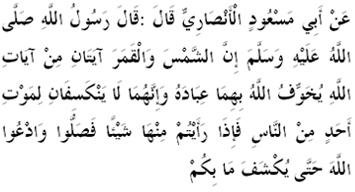 عَنْ أَبِي مَسْعُودٍ الْأَنْصَارِيِّ قَالَ :قَالَ رَسُولُ اللَّهِ صَلَّى
اللَّهُ عَلَيْهِ وَسَلَّمَ إِنَّ الشَّمْسَ وَالْقَمَرَ آيَتَانِ مِنْ آيَاتِ
اللَّهِ يُخَوِّفُ اللَّهُ بِهِمَا عِبَادَهُ وَإِنَّهُمَا لَا يَنْكَسِفَانِ لِمَوْتِ
أَحَدٍ مِنْ النَّاسِ فَإِذَا رَأَيْتُمْ مِنْهَا شَيْئًا فَصَلُّوا وَادْعُوا
اللَّهَ حَتَّى يُكْشَفَ مَا بِكُمْ